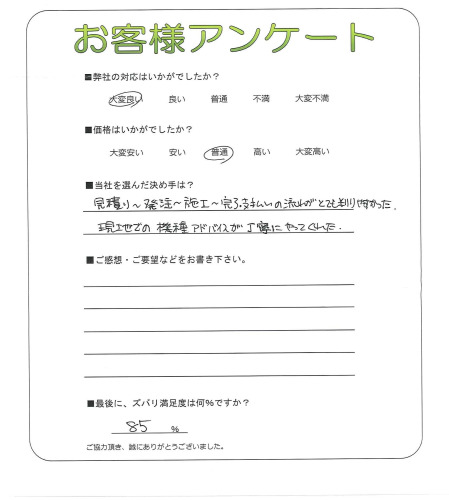 お客様アンケート
■弊社の対応はいかがでしたか？
大変良い 良い 普通 不満 大変不満
■価格はいかがでしたか？
大変安い 安い 普通 高い 大変高い
■当社を選んだ決め手は？
見積り～発注～施工～完了・支払いの流れがとても判りやすかった.
現地での機種アドバイスが丁寧にやってくれた.
■ご感想・ご要望などをお書き下さい。
■最後に、ズバリ満足度は何％ですか？
85 ％
ご協力頂き、誠にありがとうございました。